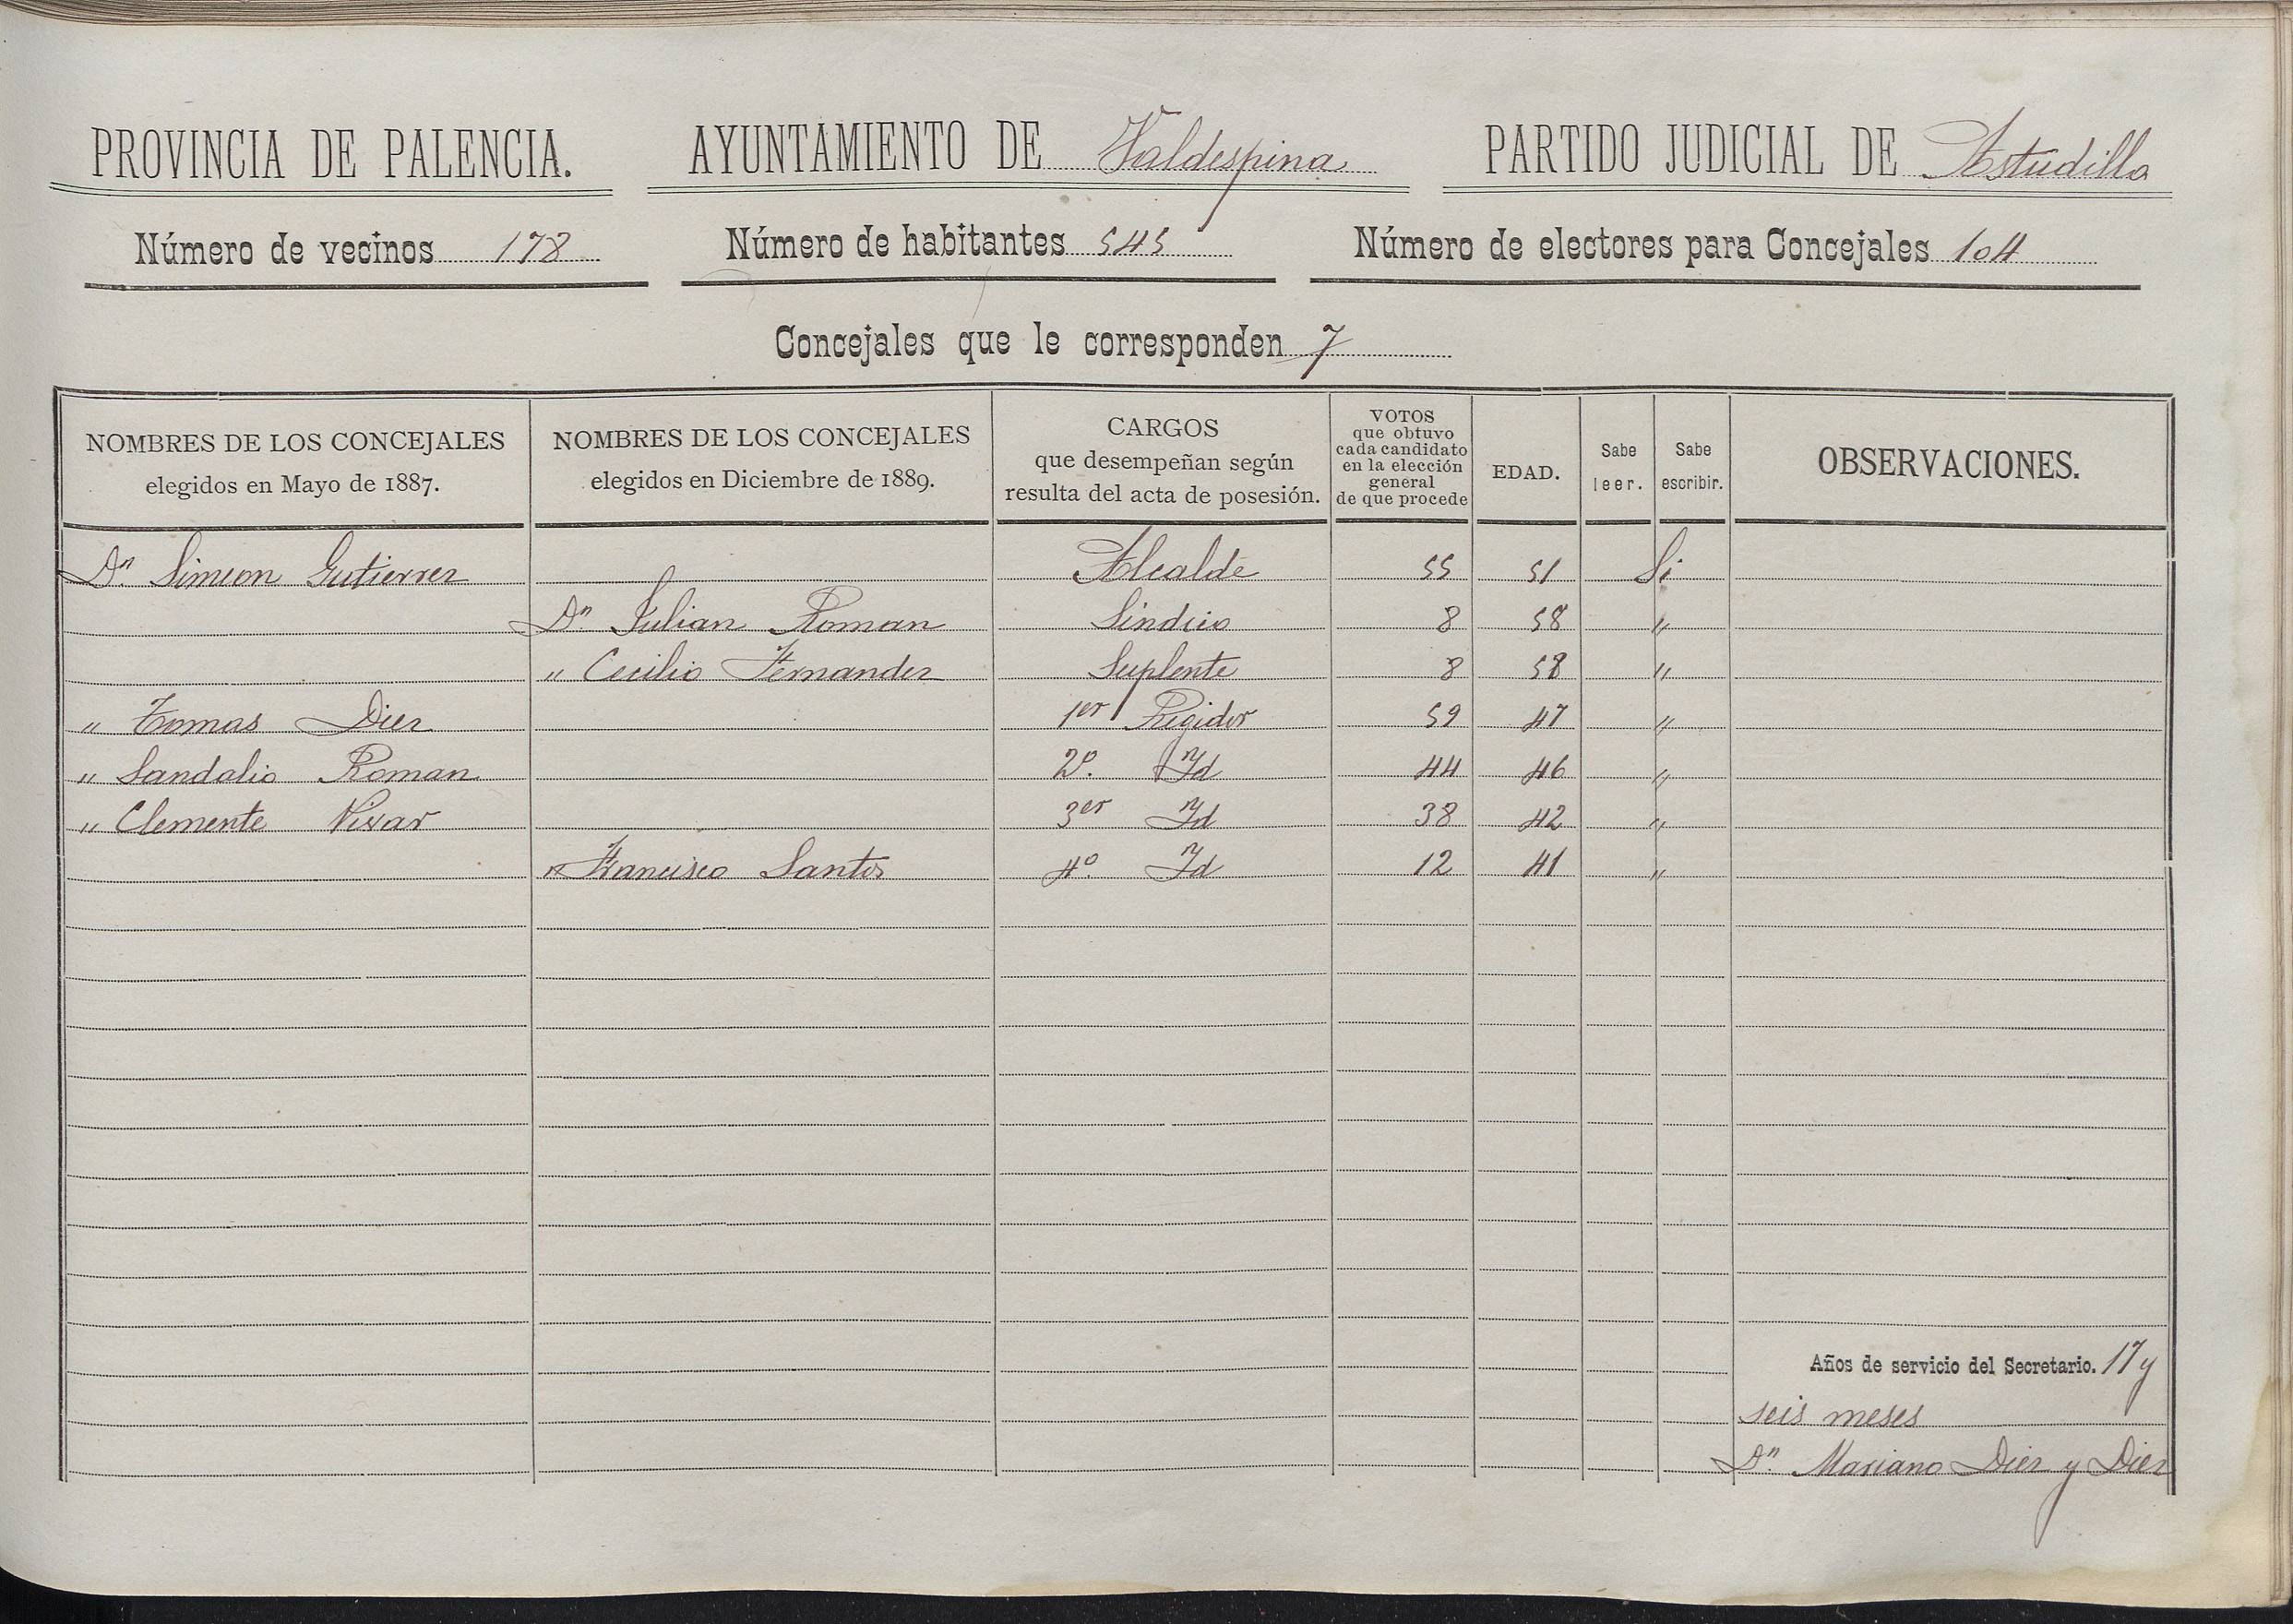 PROVINCIA DE PALENCIA. AYUNTAMIENTO DE Valdespina PARTIDO JUDICIAL DE Astudillo
Número de vecinos 178 Número de habitantes 545 Número de electores para Concejales 104
Concejales que le corresponden 7
NOMBRES DE LOS CONCEJALES elegidos en Mayo de 1887. NOMBRES DE LOS CONCEJALES elegidos en Diciembre de 1889. CARGOS que desempeñan según resulta del acta de posesión. VOTOS que obtuvo cada candidato en la elección general de que procede EDAD. Sabe leer. Sabe escribir. OBSERVACIONES.
Dn. Simeon Gutierrez Alcalde 55 51 Si
Dn. Julian Roman Sindico 8 58 "
" Cecilio Fernandez Suplente 8 58 "
" Tomas Diez 1er Regidor 59 47 "
" Sandalio Roman 2º. Id 44 46 "
" Clemente Vivar 3er Id 38 42 "
" Francisco Santos 4º. Id 12 41 "
Años de servicio del Secretario. 17 y
seis meses
Dn. Mariano Diez y Diez